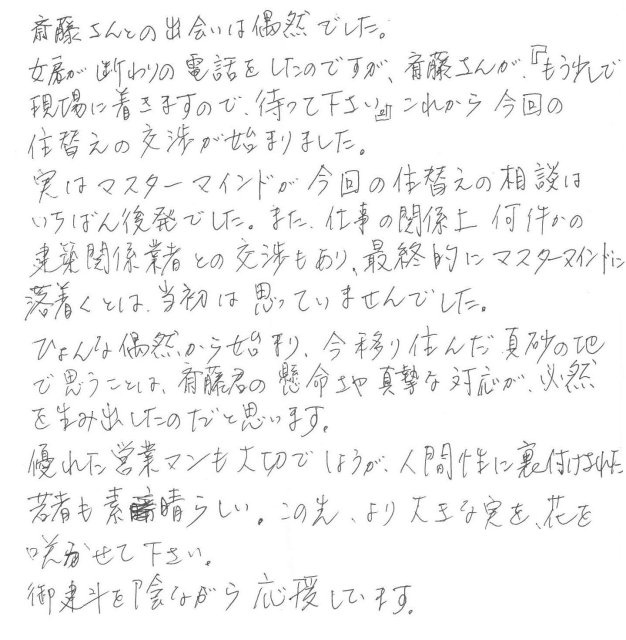 斎藤さんとの出会いは偶然でした。
女房が断わりの電話をしたのですが、斎藤さんが、『もう少しで
現場に着きますので、待って下さい』これから今回の
住替えの交渉が始まりました。
実はマスターマインドが今回の住替えの相談は
いちばん後発でした。また、仕事の関係上何件かの
建築関係業者との交渉もあり、最終的にマスターマインドに
落着くとは、当初は思っていませんでした。
ひょんな偶然から始まり、今移り住んだ真砂の地
で思うことは、斎藤君の懸命さや真摯な対応が、必然
を生み出したのだと思います。
優れた営業マンも大切でしょうが、人間性に裏付けされた
若者も素晴らしい。この先、より大きな実を、花を
咲かせて下さい。
御健斗を陰ながら応援しています。